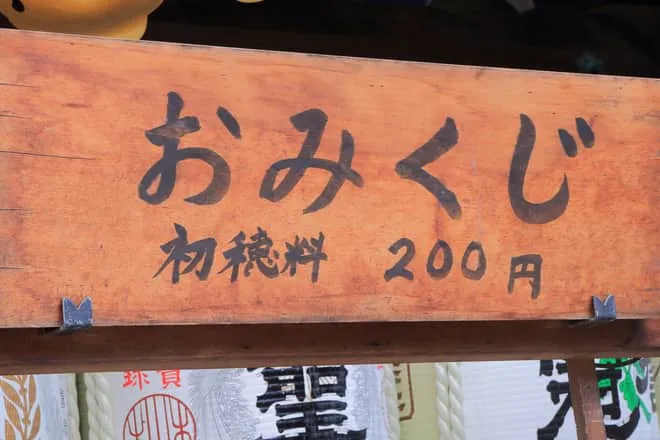 おみくじ
初穂料 200円